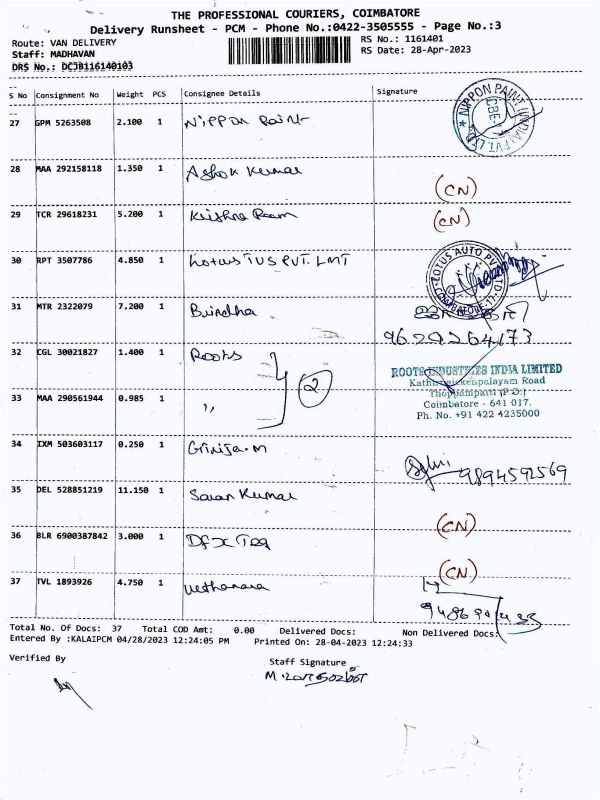 THE PROFESSIONAL COURIERS, COIMBATORE
Delivery Runsheet - PCM - Phone No.:0422-3505555 - Page No.:3
Route: VAN DELIVERY
RS No.: 1161401
Staff: MADHAVAN
RS Date: 28-Apr-2023
DRS No.: DCJB116140103
S No Consignment No Weight PCS Consignee Details Signature
27 GPM 5263508 2.100 1 Nippon Paint
NIPPON PAINT (INDIA) PVT. LTD
28 MAA 292158118 1.350 1 Ashok Kumar
(CN)
29 TCR 29618231 5.200 1 Krishna Ram (CN)
30 RPT 3507786 4.850 1 Lotus TVS PVT. LMT
LOTUS AUTO PVT LTD
COIMBATORE
31 MTR 2322079 7.200 1 Brindha
9629264173
32 CGL 30021827 1.400 1 Roots
2
ROOTS INDUSTRIES INDIA LIMITED
Kathirnaickenpalayam Road
Thoppampatti (P.O.)
Coimbatore - 641 017.
Ph. No. +91 422 4235000
33 MAA 290561944 0.985 1 "
34 IXM 503603117 0.250 1 Girija.M
9894592569
35 DEL 528851219 11.150 1 Saran Kumar
(CN)
36 BLR 6900387842 3.000 1
(CN)
37 TVL 1893926 4.750 1
Total No. Of Docs: 37 Total COD Amt: 0.00 Delivered Docs: Non Delivered Docs:
Entered By :KALAIPCM 04/28/2023 12:24:05 PM Printed On: 28-04-2023 12:24:33
Verified By
Staff Signature